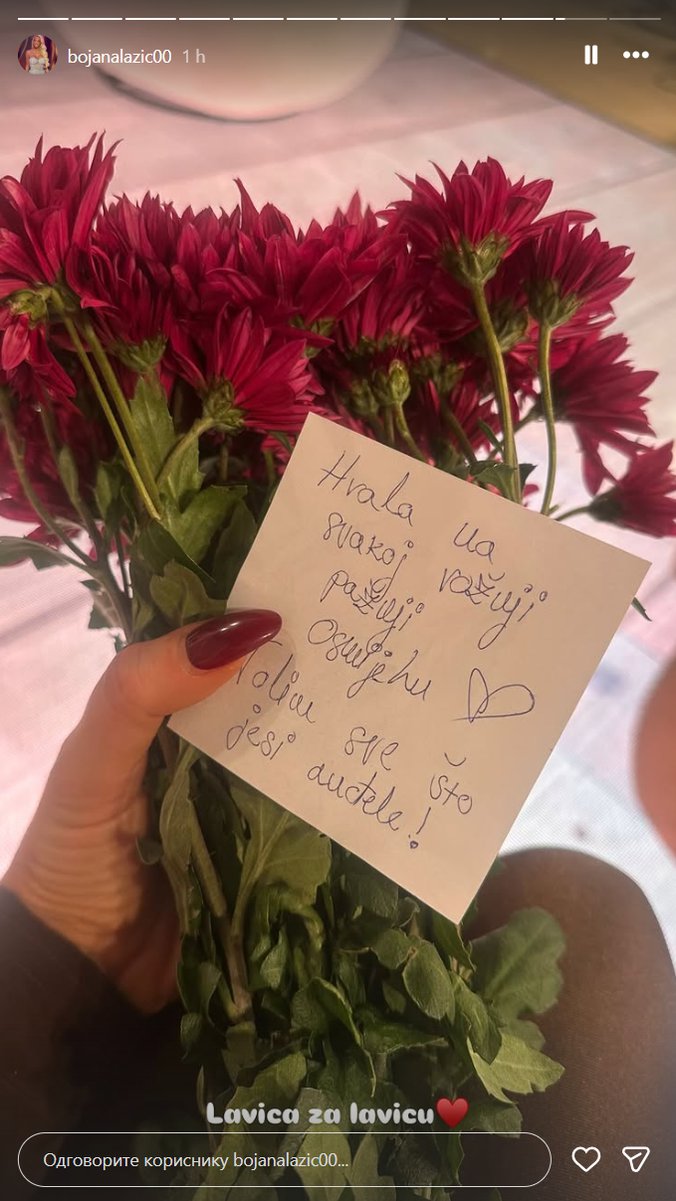 bojanalazic00 1 h
Hvala na
svakoj ražnji
pažnji
osmijehu
Volim sve što
jesi anđele!
Lavica za lavicu❤️
Одговорите кориснику bojanalazic00...